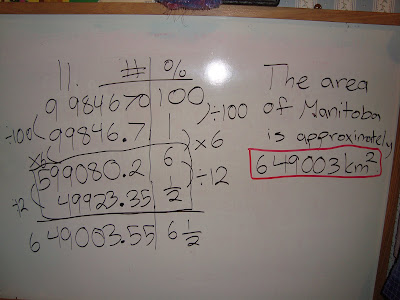 11. # %
9984670 100
÷100 99846.7 1 ÷100
x6 599080.2 6 x6
÷2 49923.35 1/2 ÷12
649003.55 6 1/2
The area
of Manitoba
is approximately
649003 km²